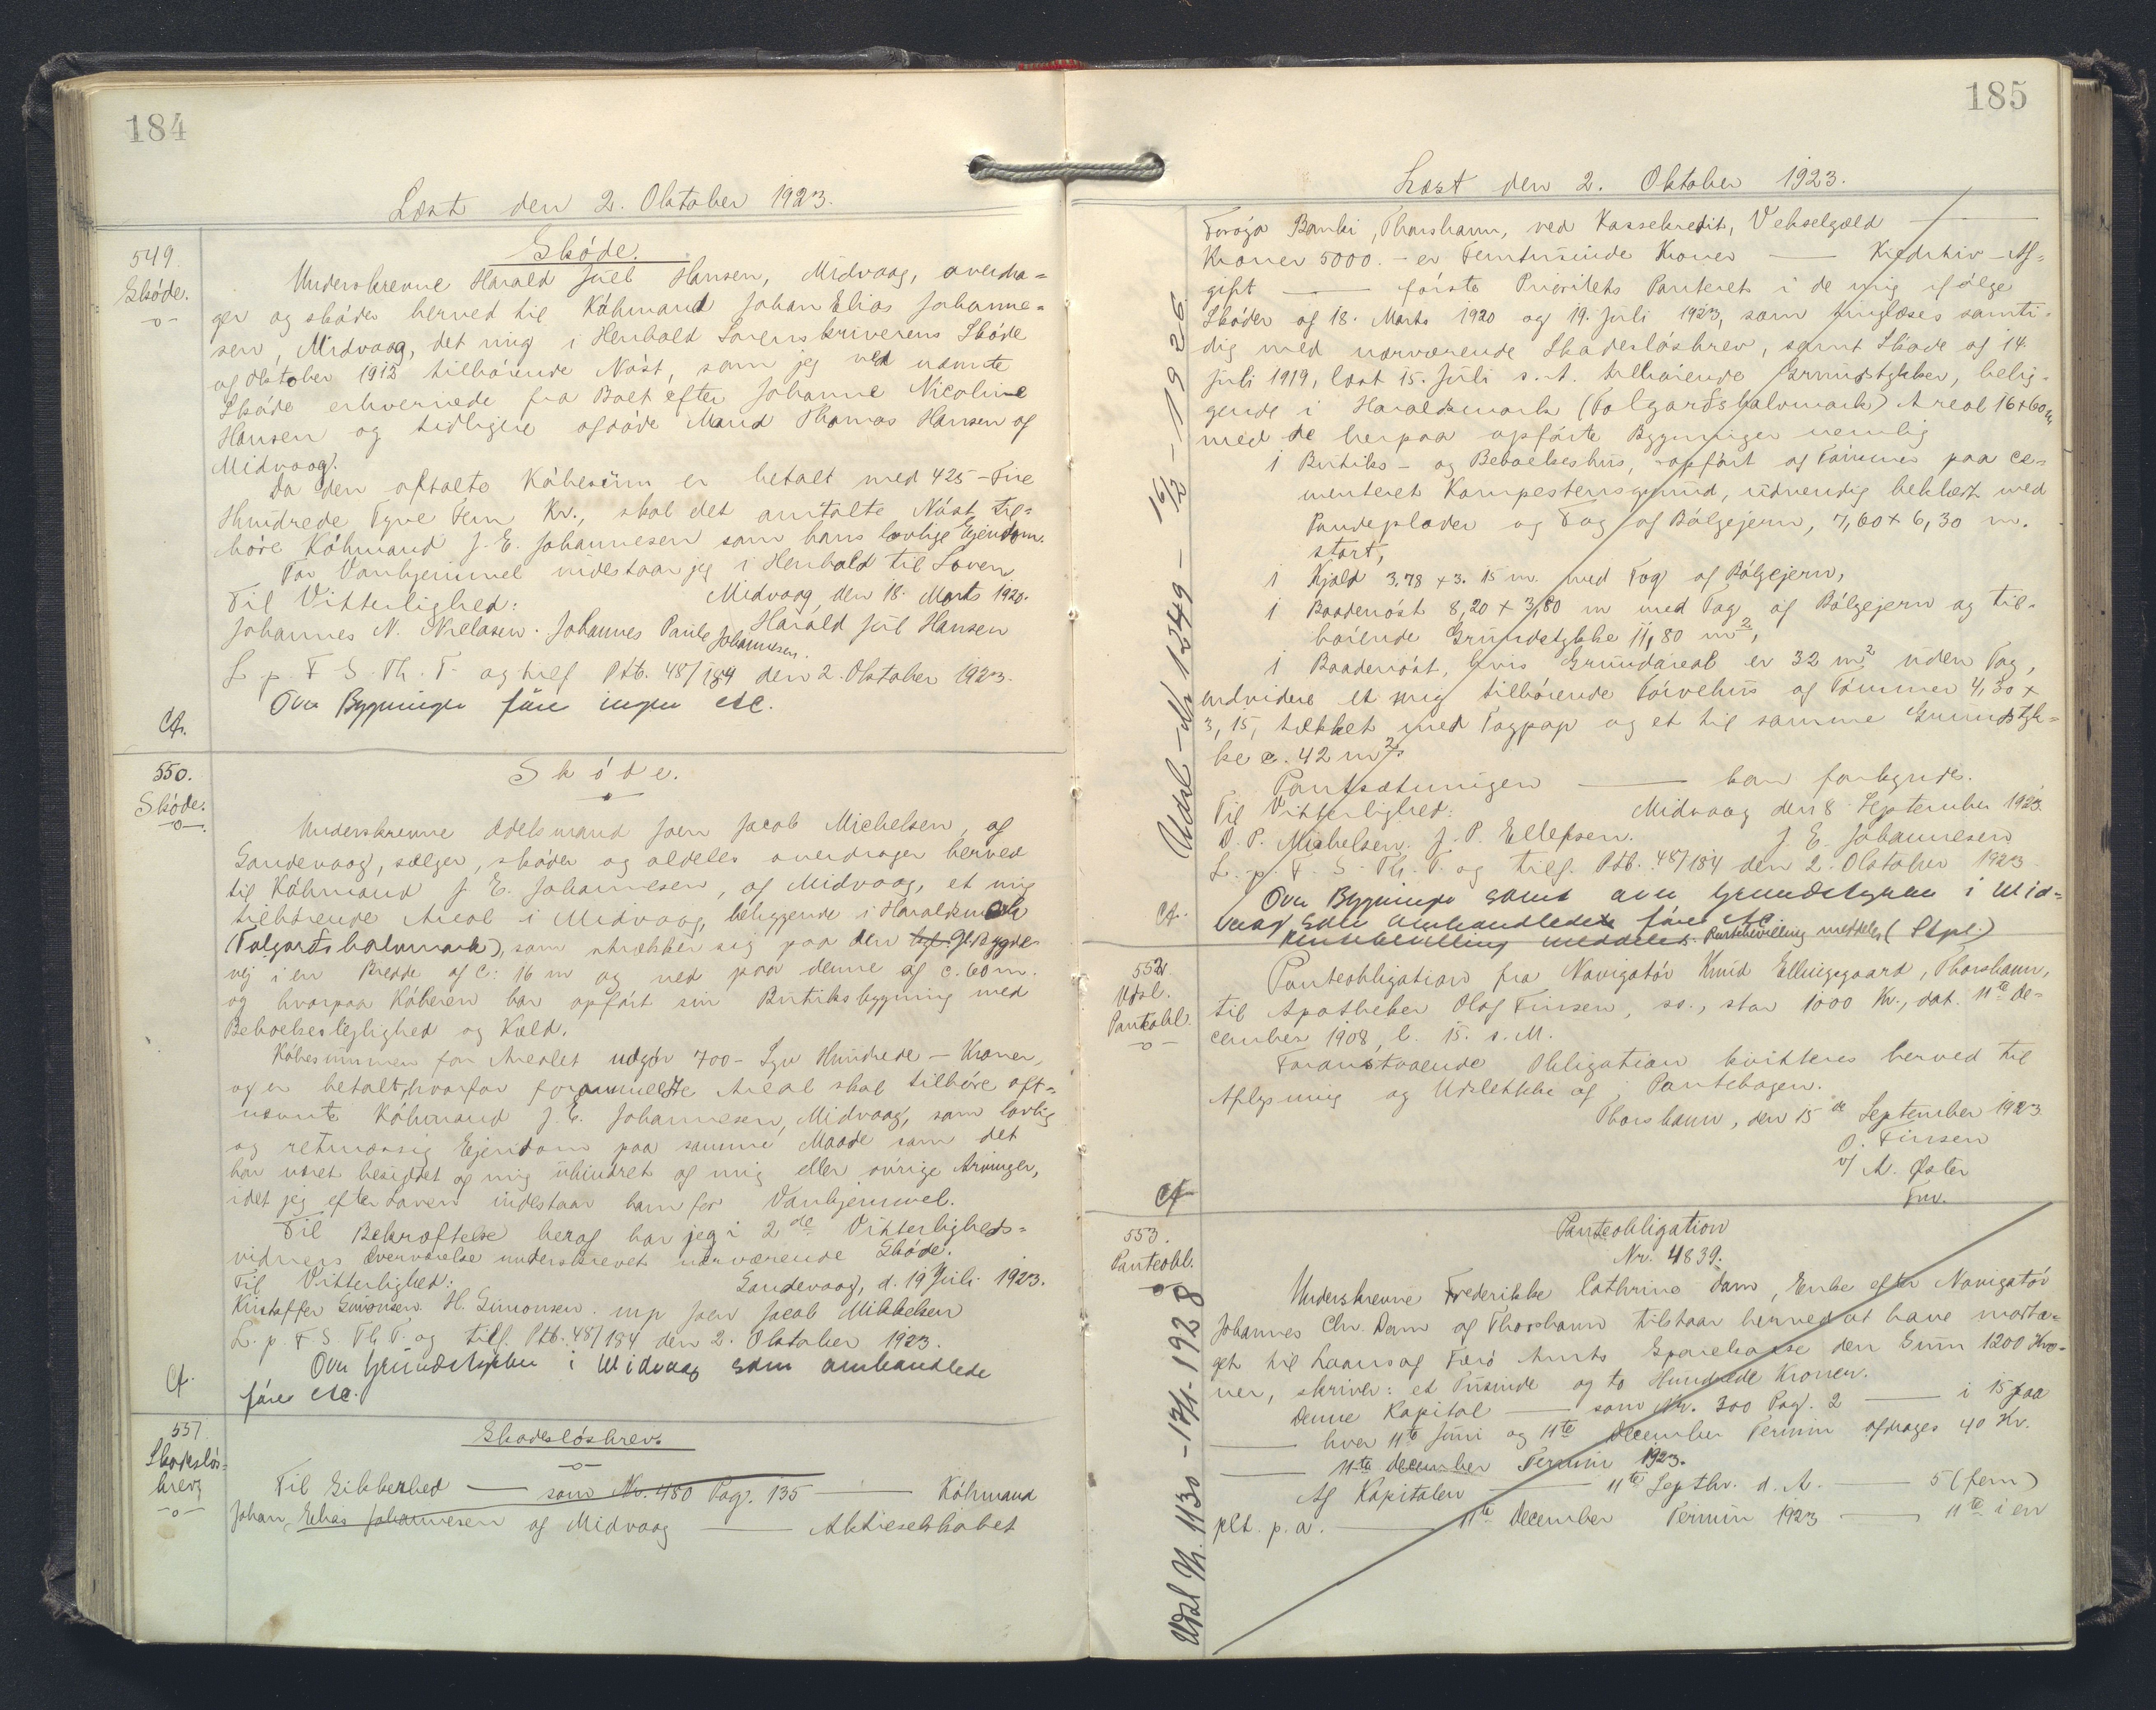 184
Læst den 2. Oktober 1923.
549.
Skóde.
Skóde.
Underskrevne Harald Juel Hansen, Midvaag, overdra=
ger og skóder herved til Kóbmand Johan Elias Johanne=
sen, Midvaag, det mig i Henhold Sorenskriverens Skóde
af Oktober 1912 tilhórende Nóst, som jeg ved nævnte
Skóde erhvervede fra Boet efter Johanne Nicoline
Hansen og tidligere afdóde Mand Thomas Hansen af
Midvaag.
Da den aftalte Kóbesum er betalt med 425 - Fire
Hundrede Tyve Fem Kr., skal det omtalte Nóst til=
hóre Kóbmand J. E. Johannesen som hans lovlige Ejendom.
For Vanhjemmel indestaar jeg i Henhold til Loven
Til Vitterlighed: Midvaag, den 18. Marts 1920.
Johannes N. Nielasen. Johannes Paule Johannesen. Harald Juel Hansen
L. p. F. S. Th. T. og tilf. Ptb. 48/184 den 2. Oktober 1923.
Over Bygninger fóres ingen etc.
Cf.
550.
Skóde.
Skóde.
Underskrevne Odelsmand Joen Jacob Michelsen, af
Sandevaag, sælger, skóder og aldeles overdrager herved
til Kóbmand J. E. Johannesen, af Midvaag, et mig
tilhórende Areal i Midvaag, beliggende i Haraldsmark
(Falgarðshalvmark), som strækker sig paa den Gl. Bygde-
vej i en Bredde af c: 16 m og ned paa denne af c. 60 m.
og hvorpaa Kóberen har opfórt sin Butiksbygning med
Beboelseslejlighed og Kæld.
Kóbesummen for Arealet udgór 700 - Syv Hundrede - Kroner,
og er betalt, hvorfor foranmeldte Areal skal tilhóre oft=
nævnte Kóbmand J. E. Johannesen, Midvaag, som lovlig
og retmæssig Ejendom paa samme Maade som det
har været besiddet af mig uhindret af mig eller óvrige Arvinger,
idet jeg efter Loven indestaar ham for Vanhjemmel.
Til Bekræftelse heraf har jeg i 2de Vitterligheds=
vidners Overværelse underskrevet nærværende Skóde.
Til Vitterlighed: Sandevaag, d. 19 Juli 1923.
Kristoffer Simonsen. H. Simonsen. mp Joen Jacob Mikkelsen
L. p. F. S. Th. T. og tilf. Ptb. 48/184 den 2. Oktober 1923.
Over Grundstykke i Midvaag som omhandlede
fóres etc.
Cf.
551.
Skadeslós=
brev
Skadeslósbrev.
Til Sikkerhed — som Nr. 480 Pag. 135 — Kóbmand
Johan Elias Johannesen af Midvaag — Aktieselskabet
185
Læst den 2. Oktober 1923.
Fóroya Banki, Thorshavn, ved Kassekredit, Vekselgæld —
Kroner 5000.- er Femtusinde Kroner — Kreditiv - Af=
gift — fórste Prioritets Panteret i de mig ifólge
Skóder af 18. Marts 1920 og 19. Juli 1923, som tinglæses samti=
dig med nærværende Skadeslósbrev, samt Skóde af 14.
Juli 1919, læst 15. Juli s. A. tilhórende Grundstykker, belig=
gende i Haraldsmark (Falgarðshalvmark) Areal 16 x 60 m
med de herpaa opfórte Bygninger nemlig
1 Butiks- og Beboelseshus, opfórt af Tómmer paa ce=
menteret Kampestensgrund, udvendig beklædt med
Pandeplader og Tag af Bólgejern, 7,60 x 6,30 m.
stort,
1 Kjald 3.78 x 3.15 m. med Tag af Bólgejern,
1 Baadenóst 8,20 x 3,80 m med Tag af Bólgejern og til=
hórende Grundstykke 11,80 m²,
1 Baadenóst, hvis Grundareal er 32 m² uden Tag,
endvidere et mig tilhórende Tórvehus af Tómmer 4,30 x
3,15, tækket med Tagpap og et til samme Grundstyk=
ke c. 42 m².
Pantsætningen — kan forlygnde.
Til Vitterlighed: Midvaag den 8 September 1923.
D. P. Michelsen. J. P. Ellefsen. J. E. Johannesen
L. p. F. S. Th. T. og tilf. Ptb. 48/184 den 2. Oktober 1923
Over Bygninger samt over Grundstykke i Mid=
vaag som omhandledes fóres etc.
Pantebevilling meddeles. Pantebevilling meddeles (Stpl.)
Cf.
Udsl. d. 1249 - 16/12 - 1926
552.
Udsl.
Panteobl.
Panteobligation fra Navigatór Knud Ellingsgaard, Thorshavn,
til Apotheker Olaf Finsen, ss., stor 1000 Kr., dat. 11te De=
cember 1908, l. 15. s. M.
Foranstaaende Obligation kvitteres herved til
Aflysning og Udslettelse af Pantebogen.
Thorshavn, den 15de September 1923
O. Finsen
v/ A. Øster
Fmr.
Cf
553.
Panteobl.
Panteobligation
Nr. 4839.
Underskrevne Frederikke Cathrine Dam, Enke efter Navigatór
Johannes Chr. Dam af Thorshavn tilstaar herved at have modta=
get til Laans af Færó Amts Sparekasse den Sum 1200 Kro=
ner, skriver: et Tusinde og to Hundrede Kroner.
Denne Kapital — som Nr. 300 Pag. 2 — i 15 paa
— hver 11te Juni og 11te December Termin afdrages 40 Kr.
— 11te December Termin 1923.
Af Kapitalen — 11te Septbr. d. A. — 5 (fem)
pCt. p. a. — 11te December Termin 1923 — 11te i en
Udsl. Nr. 1130 - 17/1-1928